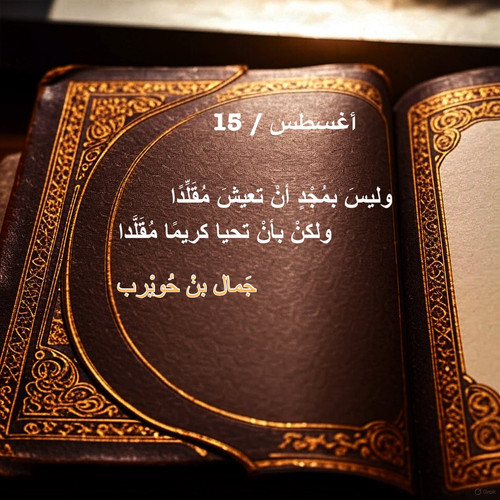 15 / أغسطس
وليسَ بمُجْدٍ أنْ تعيشَ مُقَلِّدًا
ولكنْ بأنْ تحيا كريمًا مُقَلَّدا
جَمال بنْ حُويْرِب